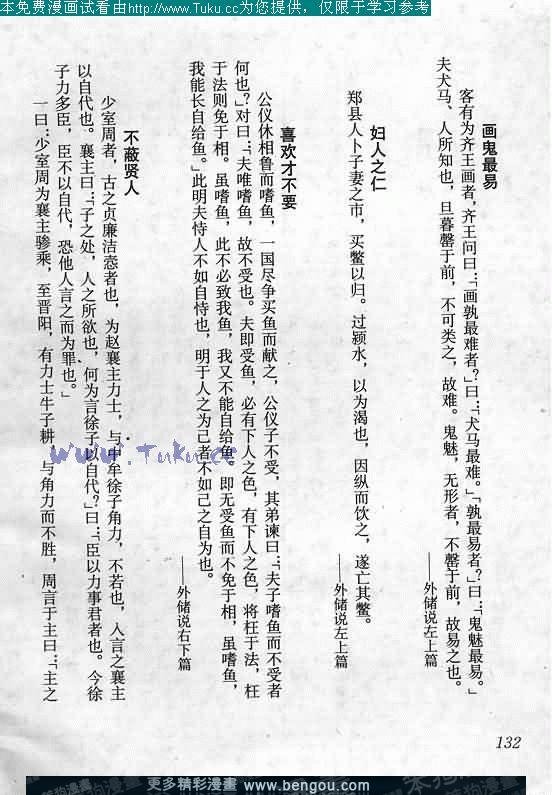 本免费漫画试看由http://www.Tuku.cc为您提供，仅限于学习参考
画鬼最易
客有为齐王画者，齐王问曰：「画孰最难者？」曰：「犬马最难。」「孰最易者？」曰：「鬼魅最易。」
夫犬马、人所知也，旦暮罄于前，不可类之，故难。鬼魅，无形者，不罄于前，故易之也。
——外储说左上篇
妇人之仁
郑县人卜子妻之市，买鳖以归。过颍水，以为渴也，因纵而饮之，遂亡其鳖。
——外储说左上篇
喜欢才不要
公仪休相鲁而嗜鱼，一国尽争买鱼而献之，公仪子不受，其弟谏曰：「夫子嗜鱼而不受者
何也？」对曰：「夫唯嗜鱼，故不受也。夫即受鱼，必有下人之色，有下人之色，将枉于法，枉
于法则免于相。虽嗜鱼，此不必致我鱼，我又不能自给鱼。即无受鱼而不免于相，虽嗜鱼，
我能长自给鱼。」此明夫恃人不如自恃也，明于人之为己者不如己之自为也。
——外储说右下篇
不蔽贤人
少室周者，古之贞廉洁悫者也，为赵襄主力士，与中牟徐子角力，不若也，人言之襄主
以自代也。襄主曰：「子之处，人之所欲也，何为言徐子以自代？」曰：「臣以力事君者也。今徐
子力多臣，臣不以自代，恐他人言之而为罪也。」
一曰：少室周为襄主骖乘，至晋阳，有力士牛子耕，与角力而不胜，周言于主曰：「主之
www.Tuku.cc
132
更多精彩漫畫 www.bengou.com